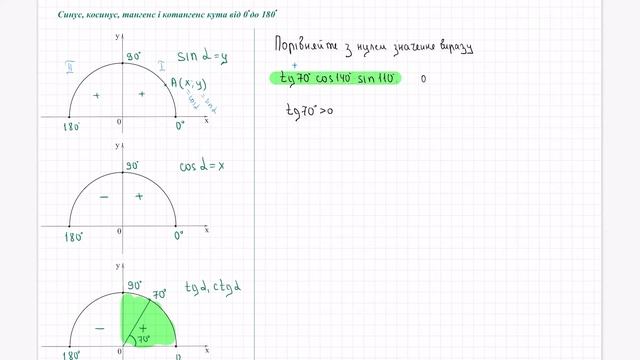 Синус, косинус, тангенс і котангенс кута від 0° до 180°
Порівняйте з нулем значення виразу
+
tg 70° cos 140° sin 110° 0
tg 70° > 0
y
90°
II
I
sin α = y
A(x; y)
+ +
180°
0
0°
x
y
90°
cos α = x
- +
180°
0
0°
x
y
90°
70°
tg α, ctg α
- +
70°
180°
0
0